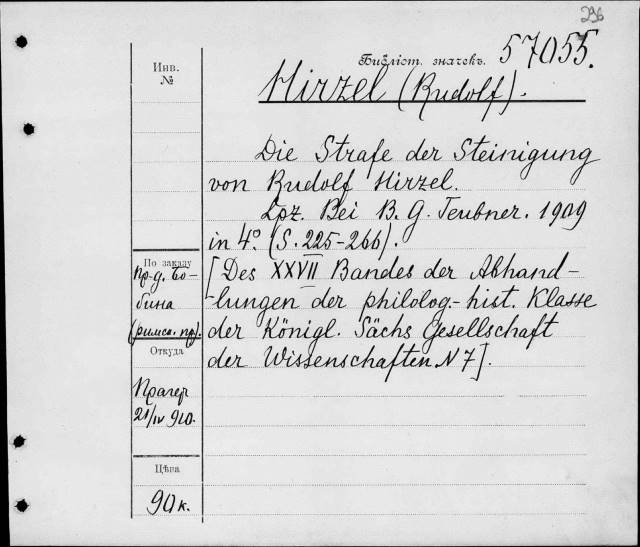 296
Библіот. значекъ. 57055.
Инв.
№
Hirzel (Rudolf).
Die Strafe der Steinigung
von Rudolf Hirzel.
Lpz. Bei B. G. Teubner. 1909
in 4º. (S. 225-266).
[Des XXVII Bandes der Abhand-
lungen der philolog.-hist. Klasse
der Königl. Sächs Gesellschaft
der Wissenschaften N 7].
По заказу
пр-д. Бо-
бина
(римск. пр).
Откуда
Прагер
21/IV 910.
Цѣна
90 к.